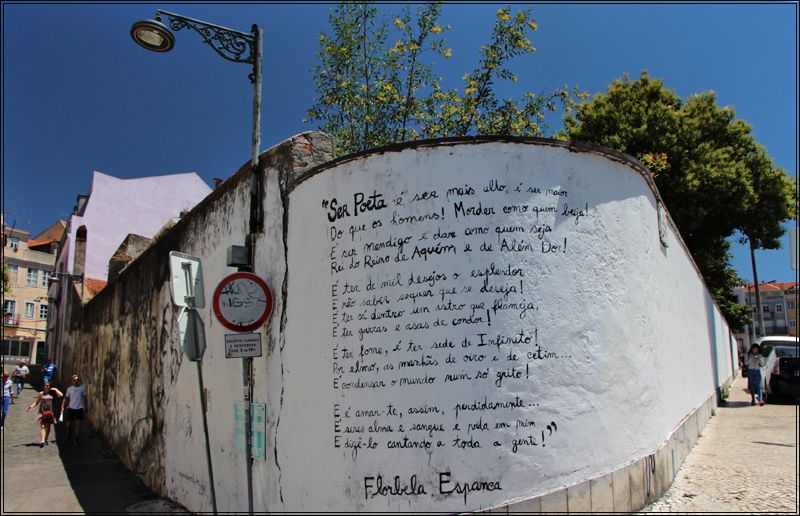 "Ser Poeta é ser mais alto, é ser maior
Do que os homens! Morder como quem beija!
É ser mendigo e dar como quem seja
Rei do Reino de Aquém e de Além Dor!
É ter de mil desejos o esplendor
E não saber sequer que se deseja!
É ter cá dentro um astro que flameja,
É ter garras e asas de condor!
É ter fome, é ter sede de Infinito!
Por elmo, as manhãs de oiro e de cetim...
É condensar o mundo num só grito!
E é amar-te, assim, perdidamente...
É seres alma e sangue e vida em mim
E dizê-lo cantando a toda a gente!"
Florbela Espanca